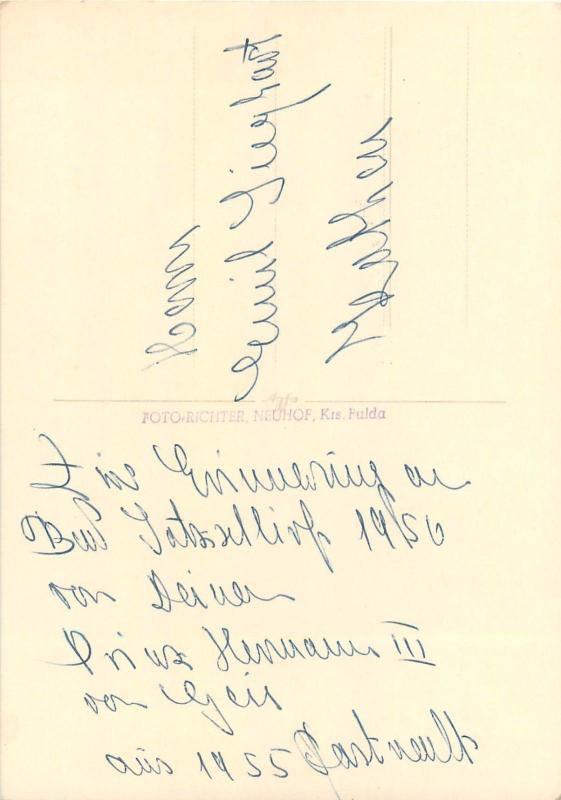 Herrn
Emil
FOTO-RICHTER, NEUHOF, Krs. Fulda
Eine Erinnerung an
Bad Salzschlirf 1956
von Deinem
Prinz Hermann III
von
aus 1955 Fastnacht